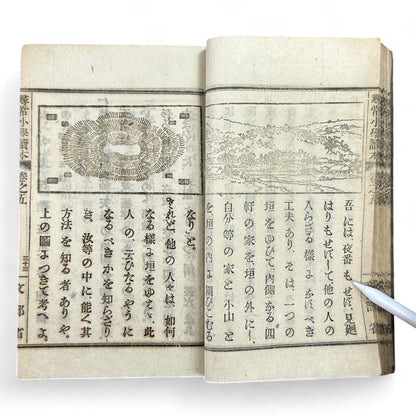 吾には、夜番も、せず、見廻
はりもせずして他の人の
入らざる様にかこふべき
工夫あり、そは、一つの
垣をゆひて、内なる四
軒の家を、垣の外にし、
自分等の家と、小山と
を、垣の内に、
なりと。
されど、他の人は、如何
なる様に、垣をゆひて、此
人の、云ひたるやうに
なるべきかを知らざり
き、汝等の中に、能く其
方法を知る者ありや。
上の圖につきて考へよ。
尋常小學讀本
卷之五
文部省